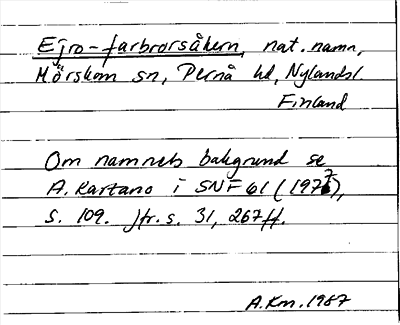 Ejro-farbrorsåkern, nat. namn,
Mörskom sn, Pernå hd, Nylands l
Finland
Om namnets bakgrund se
A. Kartano i SNF 61 (1977),
s. 109. Jfr. s. 31, 267 ff.
A.Km. 1987